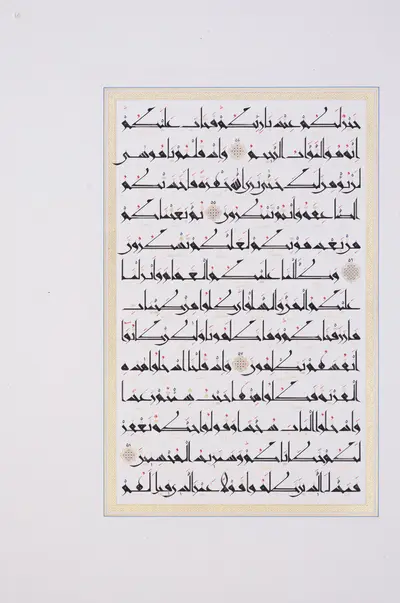 خير لكم عند بارئكم فتاب عليكم
انه هو التواب الرحيم ٥٤ واذ قلتم يا موسى
لن نؤمن لك حتى نرى الله جهرة فاخذتكم
الصاعقة وانتم تنظرون ٥٥ ثم بعثناكم
من بعد موتكم لعلكم تشكرون
٥٦ وظللنا عليكم الغمام وانزلنا
عليكم المن والسلوى كلوا من طيبات
ما رزقناكم وما ظلمونا ولكن كانوا
انفسهم يظلمون ٥٧ واذ قلنا ادخلوا هذه
القرية فكلوا منها حيث شئتم رغدا
وادخلوا الباب سجدا وقولوا حطة نغفر
لكم خطاياكم وسنزيد المحسنين ٥٨
فبدل الذين ظلموا قولا غير الذي قيل لهم